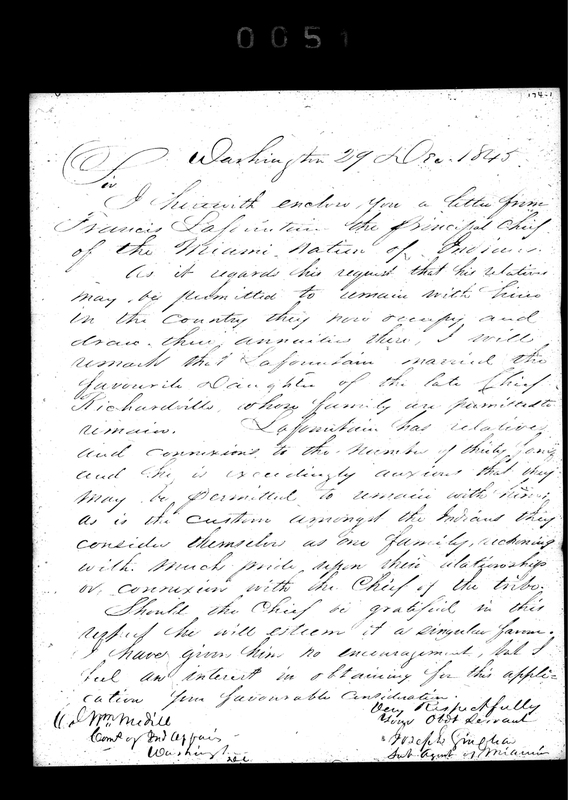 0051
174-1
Washington 29 Dec. 1845.
Sir
I herewith enclose you a letter from
Francis Lafountain the principal Chief
of the Miami Nation of Indians.
As it regards his request that his relatives
may be permitted to remain with him
in the Country they now occupy and
draw their annuities there, I will
remark that Lafountain married the
favourite Daughter of the late Chief
Richardville, whose family are permitted to
remain. Lafountain has relatives
and connexions to the number of thirty
and he is exceedingly anxious that they
may be permitted to remain with him,
as is the custom amongst the Indians they
consider themselves as one family, reckoning
with much pride upon their relationship
or connexion with the Chief of the tribe.
Should the Chief be gratified in this
respect he will esteem it a singular favour.
I have given him no encouragement, but I
feel an interest in obtaining for this appli-
cation your favourable Consideration.
Very Respectfully
Your Obt Servant
Joseph Sinclear
Sub Agent of Miamis
Col Wm Medill
Comr of Ind Affairs
Washington